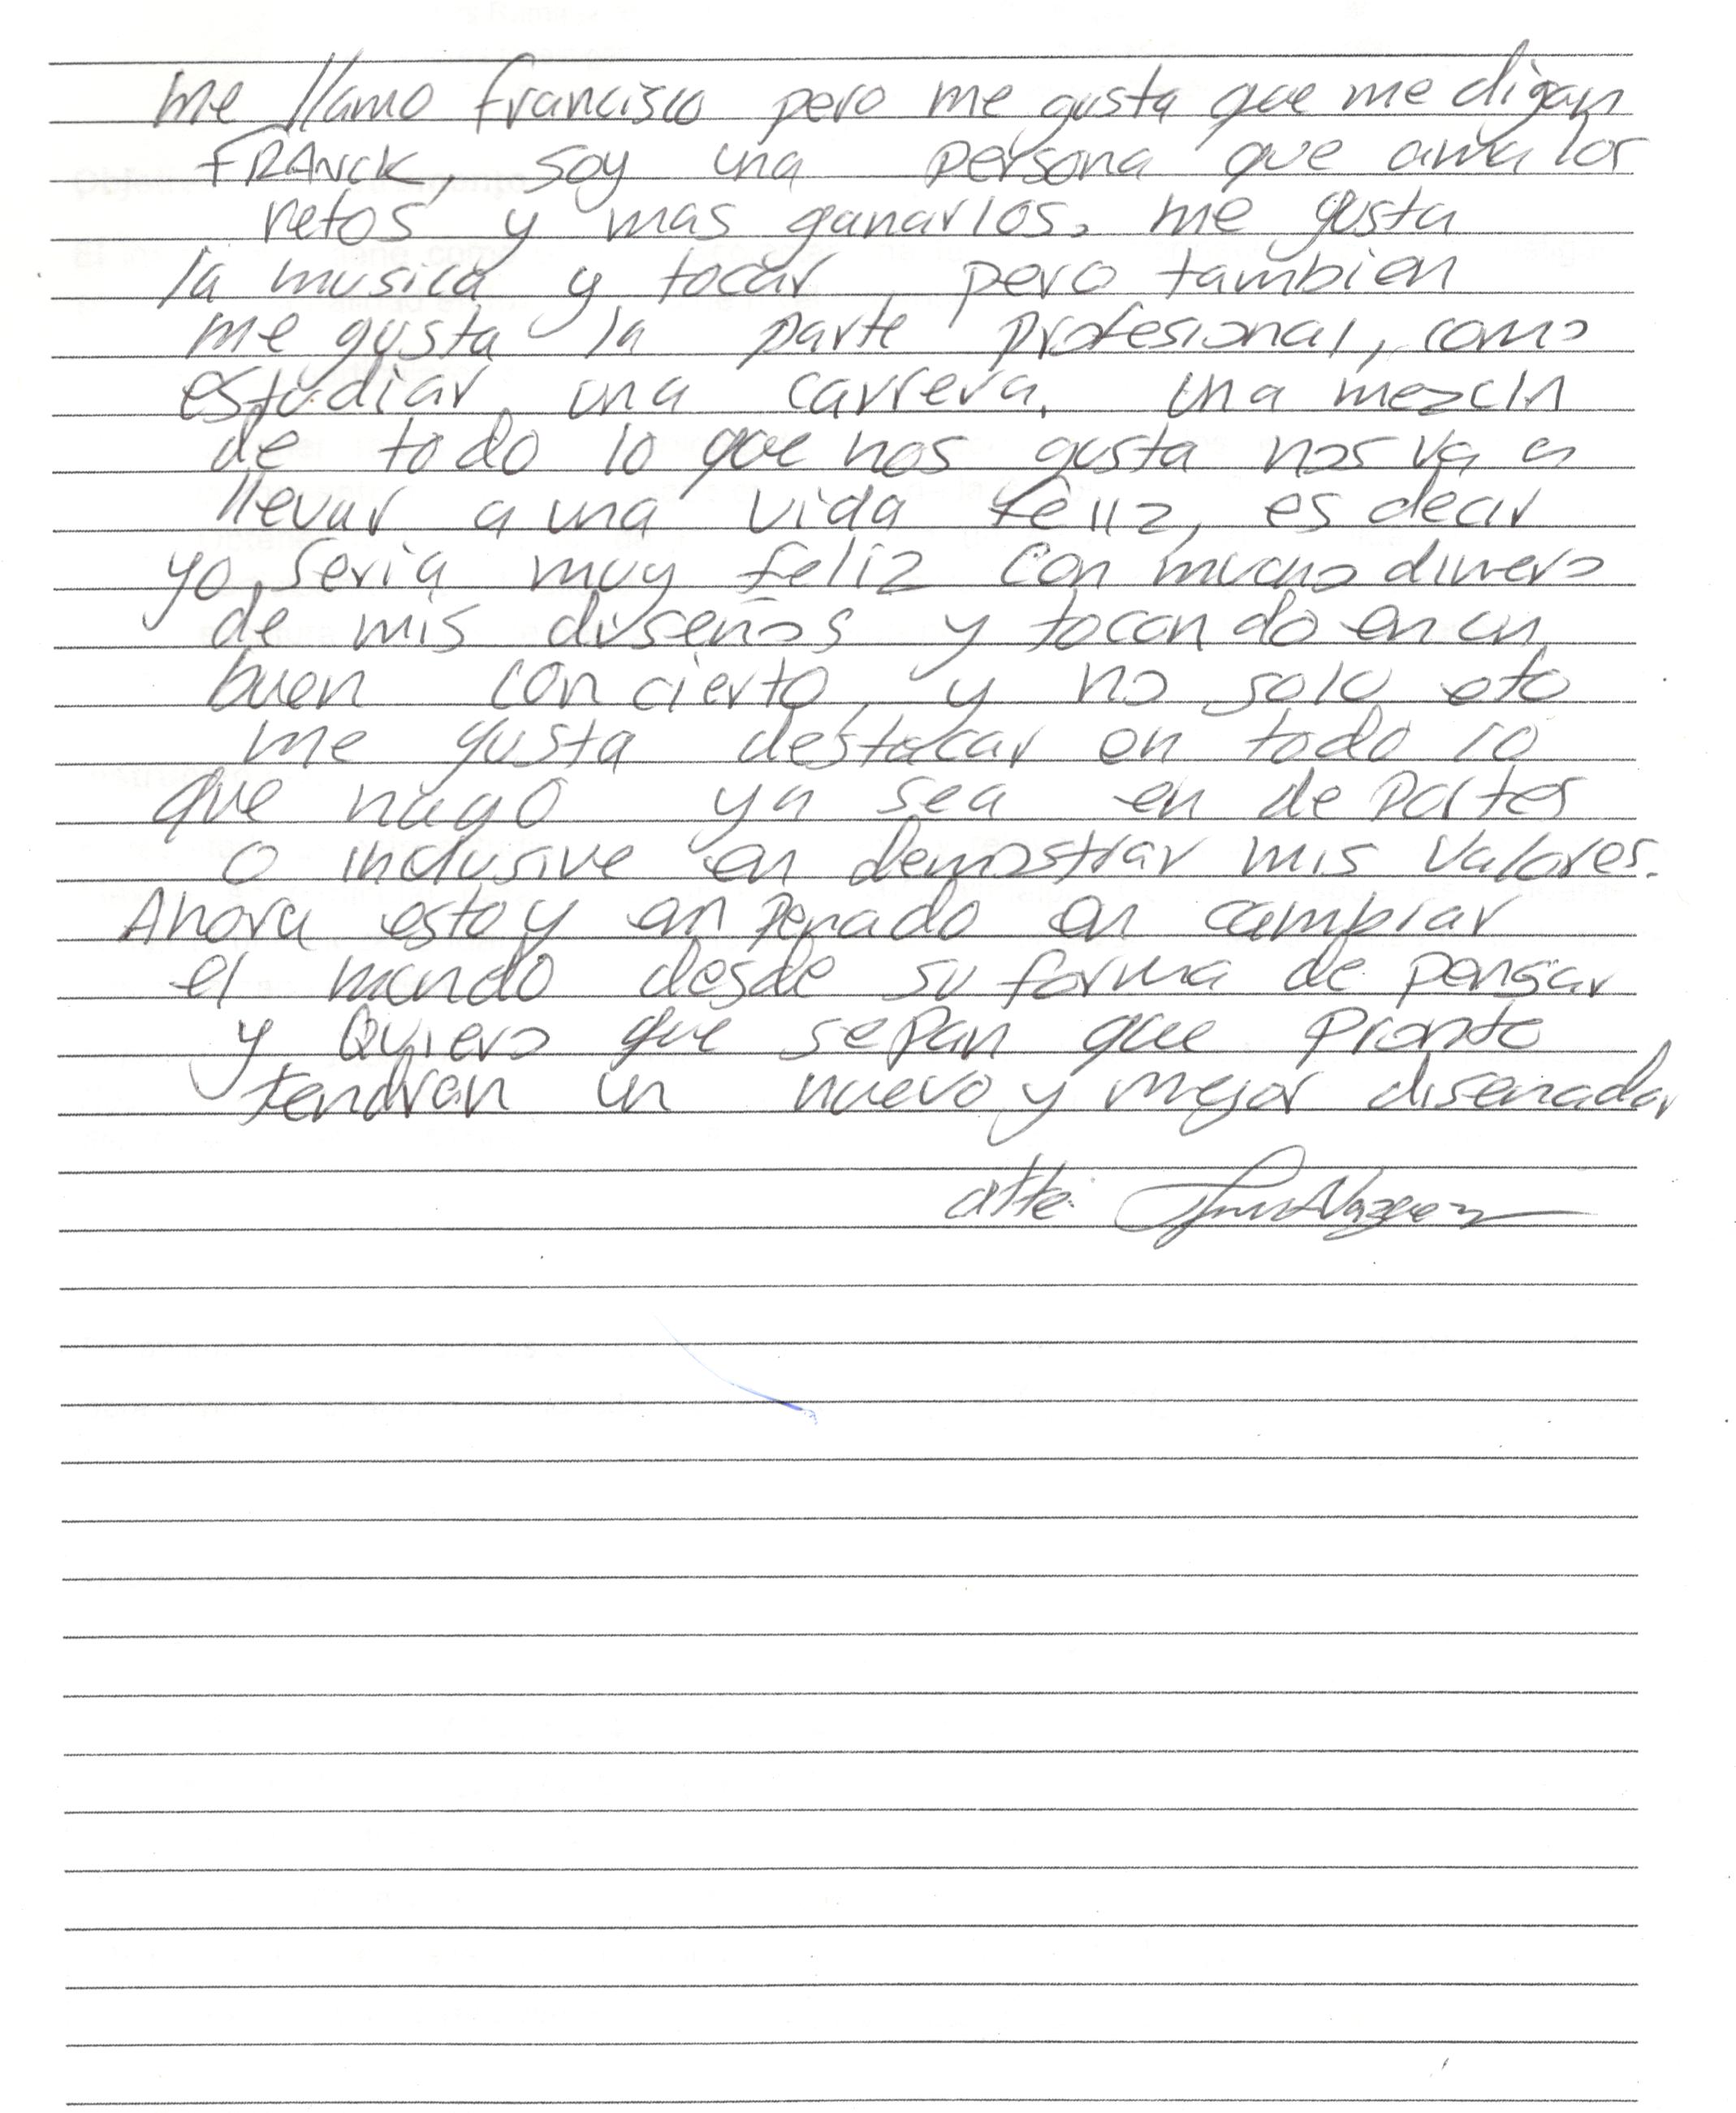 me llamo francisco pero me gusta que me digan
FRANCK, soy una persona que ama los
retos y mas ganarlos. me gusta
la musica y tocar, pero tambien
me gusta la parte profesional, como
estudiar una carrera. una mezcla
de todo lo que nos gusta nos va a
llevar a una vida feliz, es decir
yo seria muy feliz con mucho dinero
de mis diseños y tocando en un
buen concierto, y no solo eto
me gusta destacar en todo lo
que hago ya sea en deportes
o inclusive en demostrar mis valores.
Ahora estoy enpenado en cambiar
el mundo desde su forma de pensar
y Quiero que sepan que pronto
tendran un nuevo y mejor diseñador
atte. Vazquez